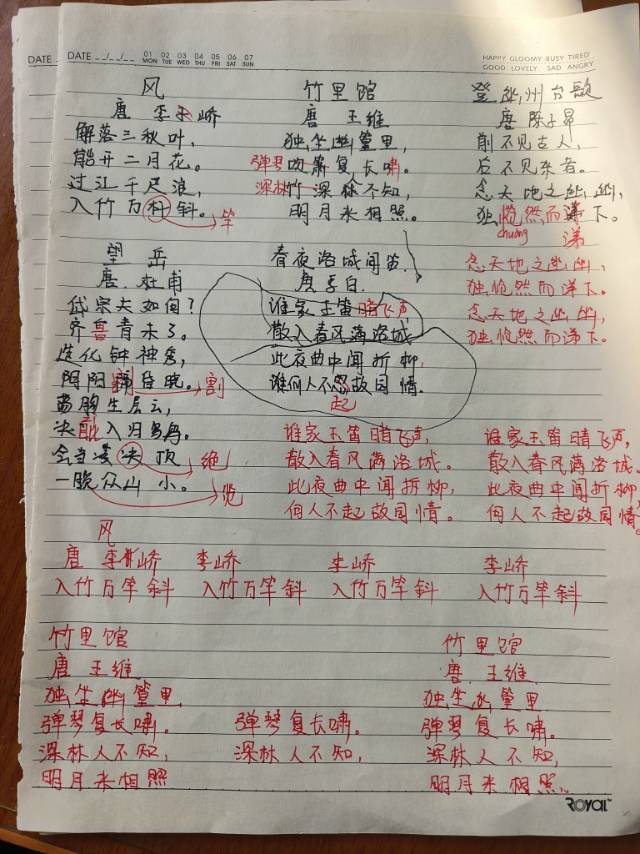 DATE
DATE
01 02 03 04 05 06 07
MON TUE WED THU FRI SAT SUN
HAPPY GLOOMY BUSY TIRED
GOOD LOVELY SAD ANGRY
风
唐 李 峤
解落三秋叶,
能开二月花。
过江千尺浪,
入竹万 斜。
竿
竹里馆
唐 王维
独坐幽篁里,
弹琴 复长啸。
深林 深林不知,
明月来相照。
登幽州台歌
唐 陈子昂
前不见古人,
后不见来者。
念天地之幽幽,
独怆然而涕下。
chuang 涕
念天地之幽幽,
独怆然而涕下。
念天地之幽幽,
独怆然而涕下。
望岳
唐 杜甫
岱宗夫如何?
齐鲁青未了。
造化钟神秀,
阴阳割昏晓。
割
荡胸生层云,
决眦入归鸟。
会当凌决顶
绝
一晓众山小。
览
春夜洛城闻笛
唐 李白
谁家玉笛暗飞声
散入春风满洛城
此夜曲中闻折柳,
谁何人不 故园情.
起
谁家玉笛暗飞声,
散入春风满洛城。
此夜曲中闻折柳,
何人不起故园情。
谁家玉笛暗飞声,
散入春风满洛城。
此夜曲中闻折柳,
何人不起故园情。
风
唐 李 峤 李峤 李峤 李峤
入竹万竿斜 入竹万竿斜 入竹万竿斜 入竹万竿斜
竹里馆
唐 王维
独坐幽篁里
弹琴复长啸。
深林人不知,
明月来相照
弹琴复长啸。
深林人不知,
竹里馆
唐 王维
独坐幽篁里
弹琴复长啸。
深林人不知,
明月来相照.
ROYAL